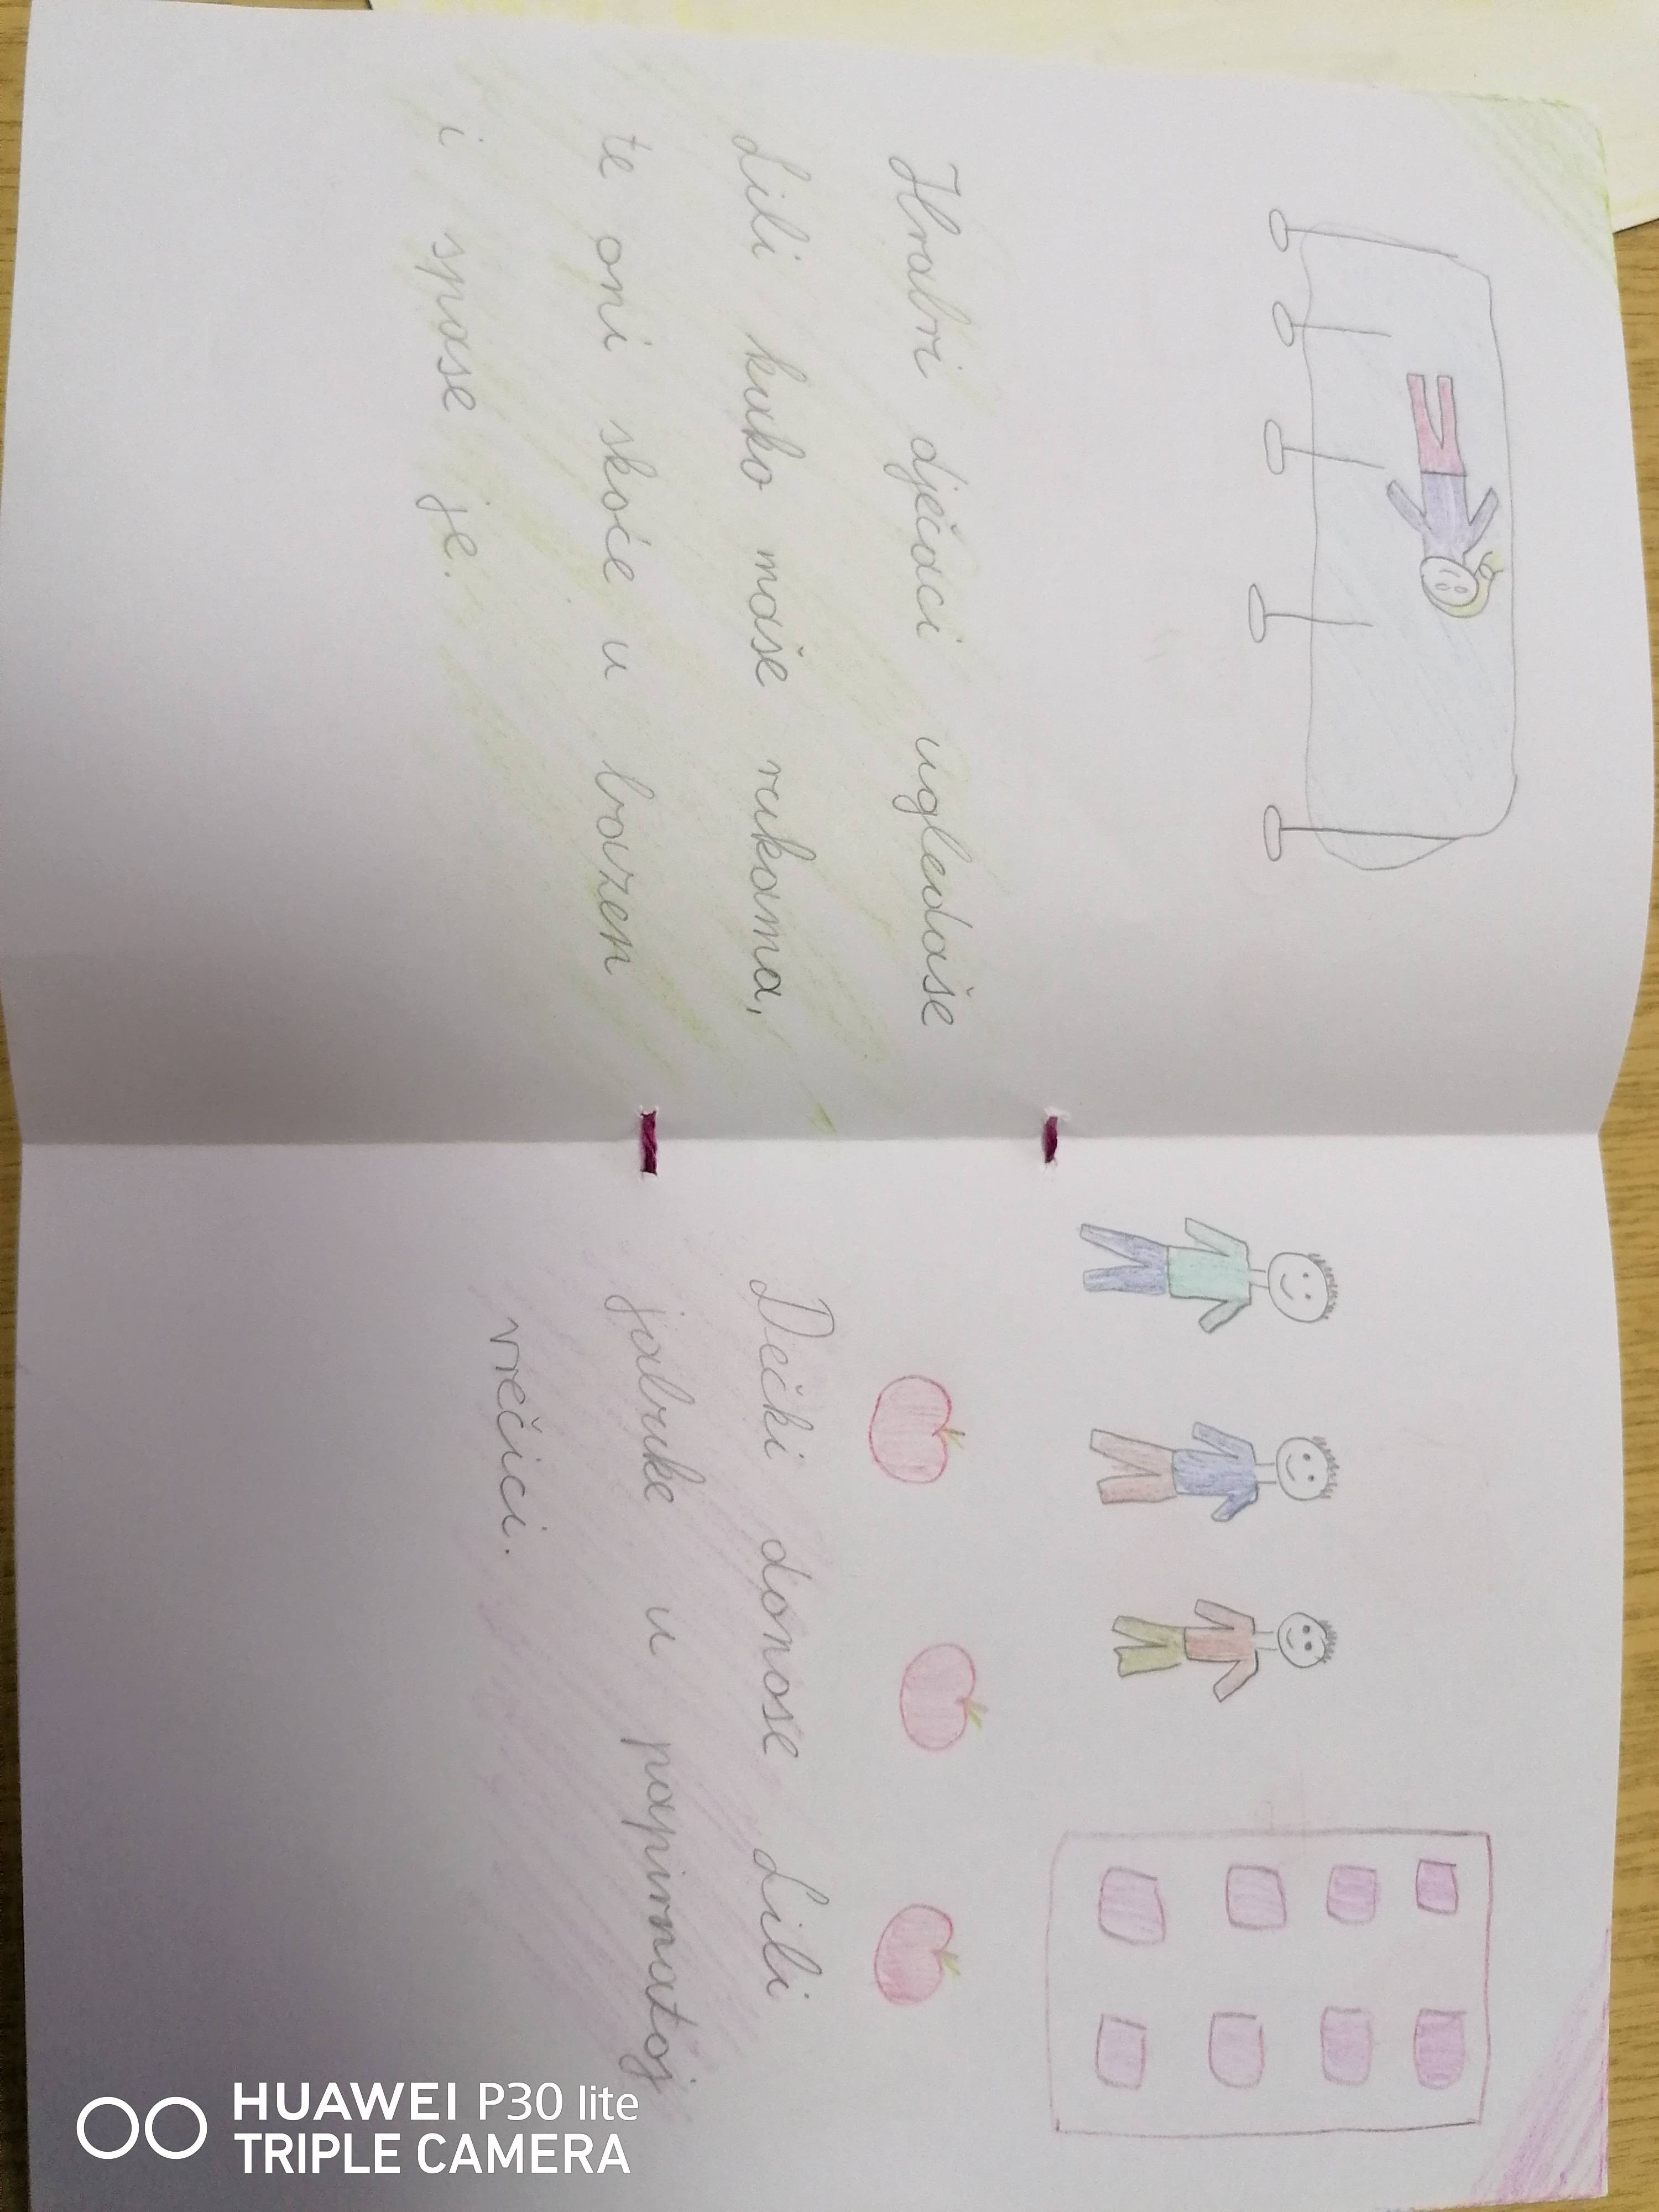 Hrabri dječaci ugledaše
Lili kako maše rukama,
te oni skoče u bazen
i spase je.
Dečki donose Lili
jabuke u papirnatoj
vrećici.
HUAWEI P30 lite
TRIPLE CAMERA